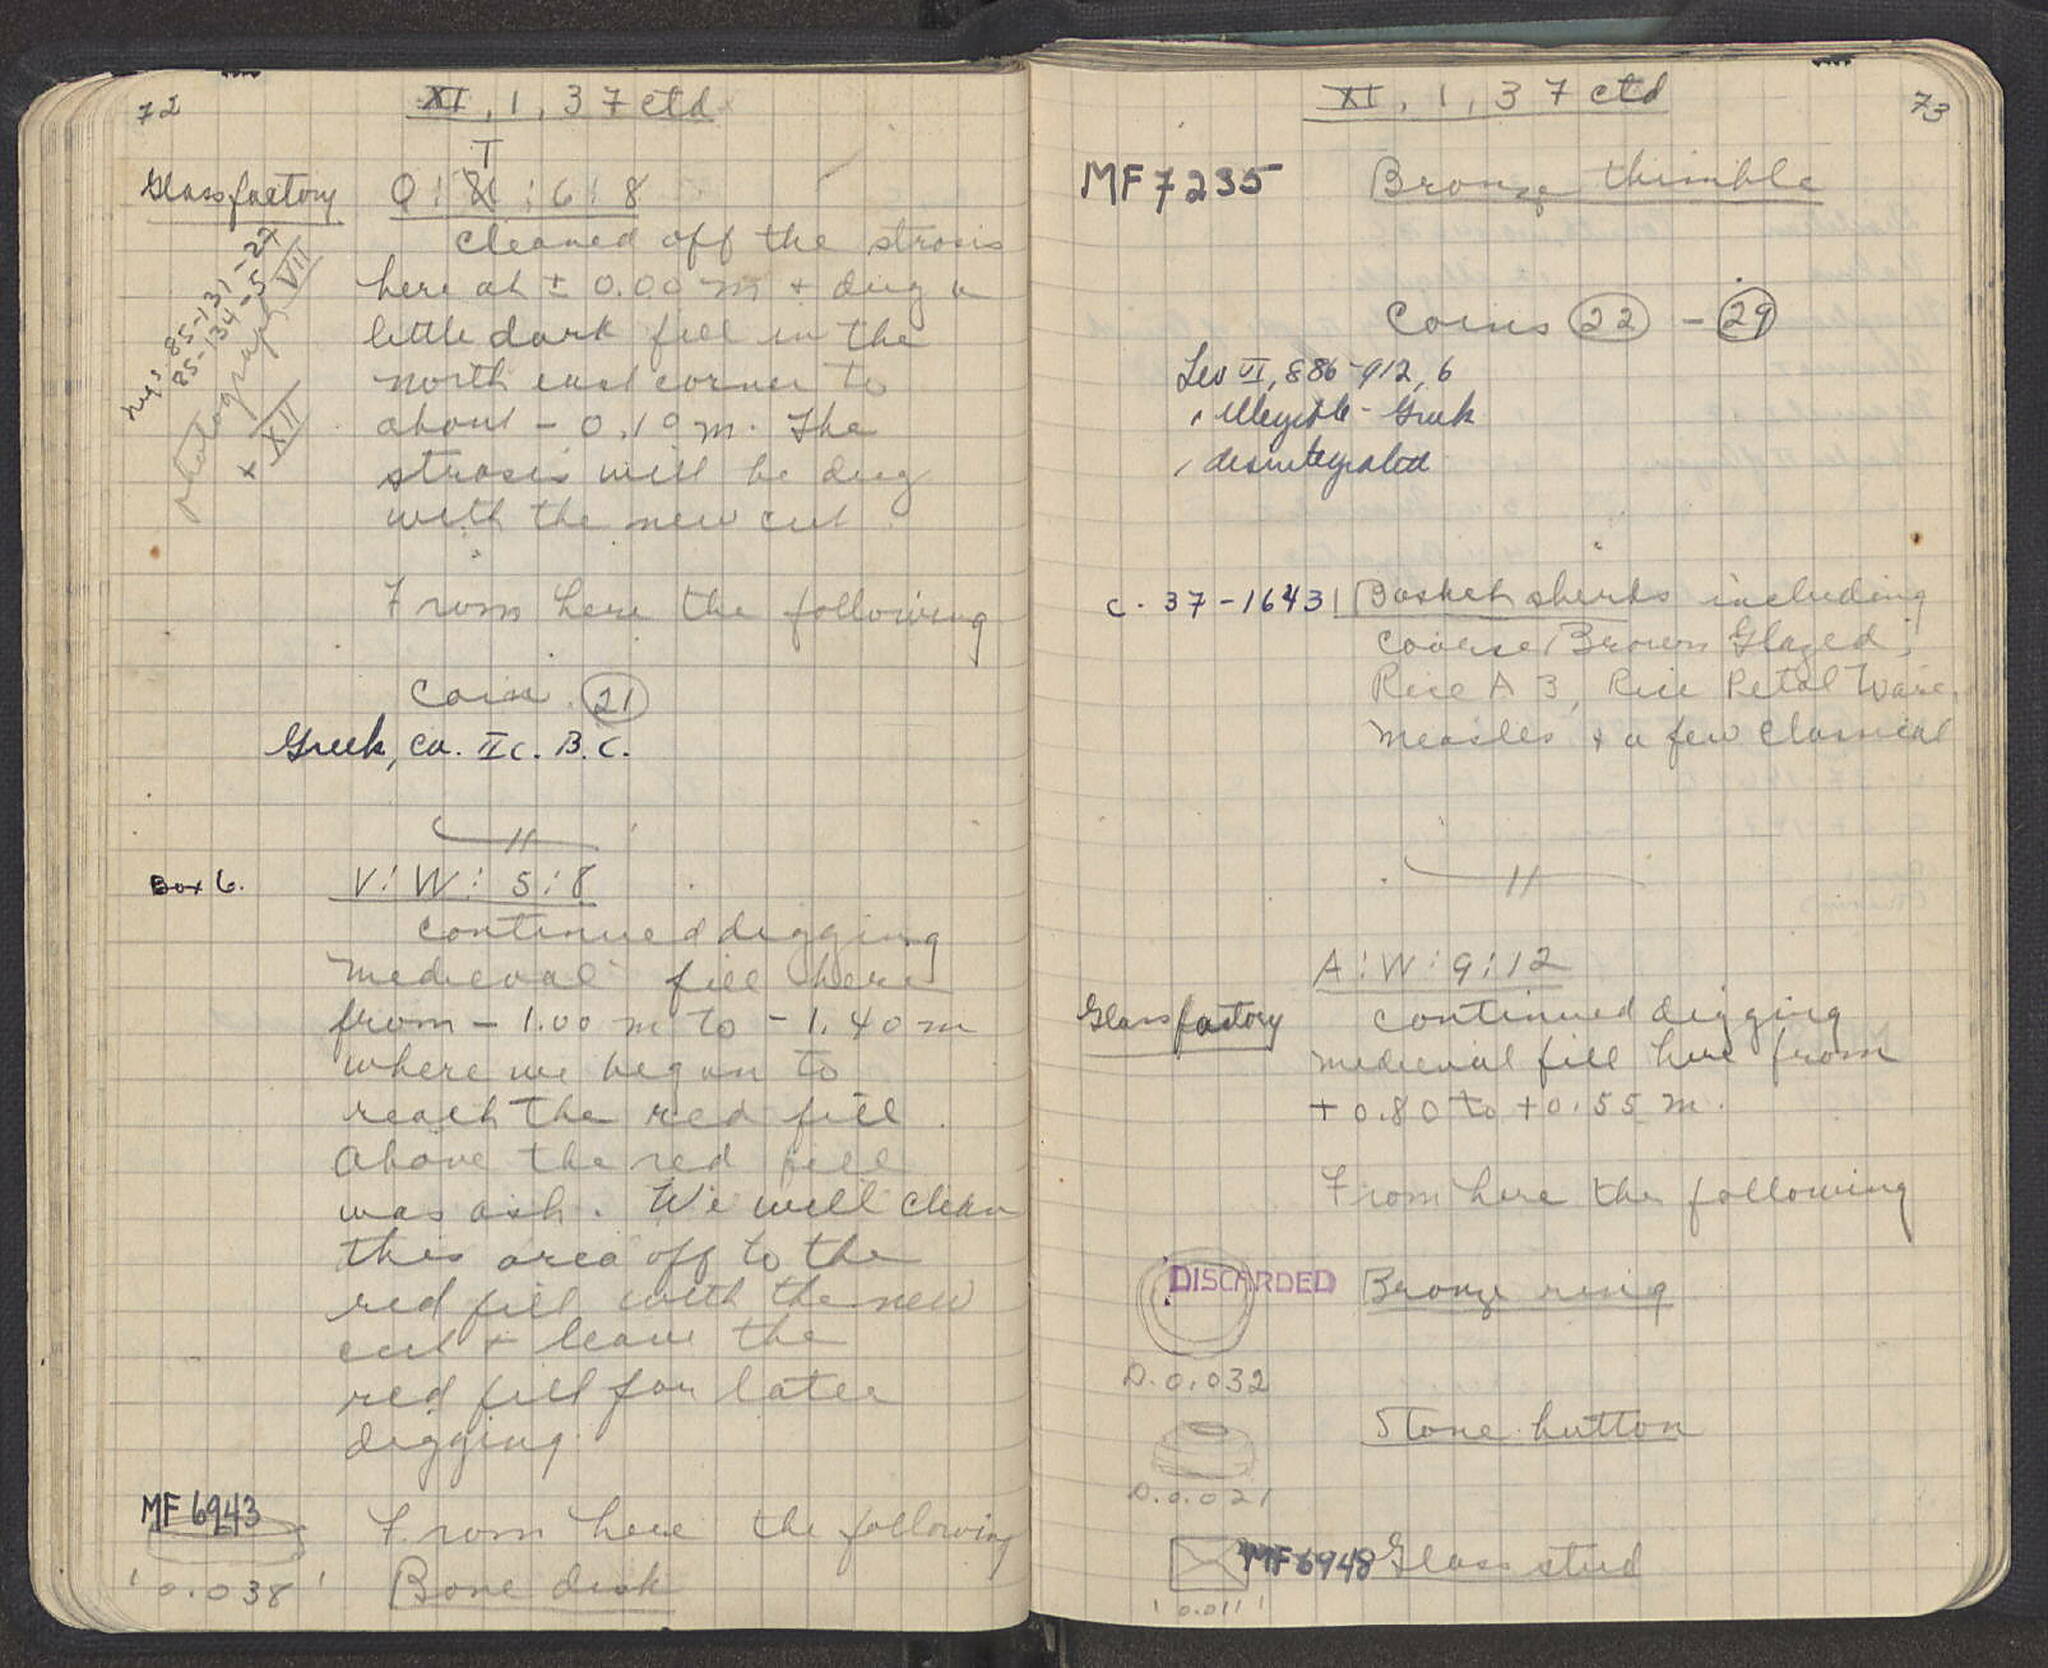 72
XI, 1, 37 ctd
T
Glass factory O : N : 6 : 8
negs 85-131-27
85-134-5
photograph VII
+ XII
cleaned off the strosis
here at ± 0.00 m + dug a
little dark fill in the
north east corner to
about - 0.10 m. The
strosis will be dug
with the new cut
From here the following
Coin 21
Greek, ca. II c. B.C.
Box 6. V : W : 5 : 8
continued digging
medieval fill here
from - 1.00 m to - 1.40 m
where we began to
reach the red fill.
Above the red fill
was ash. We will clean
this area off to the
red fill with the new
cut + leave the
red fill for later
digging.
MF 6943
From here the following
0.038 Bone disk
XI, 1, 37 ctd
73
MF 7235 Bronze thimble
Coins 22 - 29
Leo VI, 886-912, 6
1 illegible - Greek
1 disintegrated
C. 37-1643 1 Basket sherds including
coarse Brown Glazed,
Rice A 3, Rice Petal Ware,
Measles + a few Classical
A : W : 9 : 12
Glass factory continued digging
medieval fill here from
+ 0.80 to + 0.55 m.
From here the following
DISCARDED Bronze ring
D. 0.032
Stone button
D. 0.021
MF 6948 Glass stud
0.011